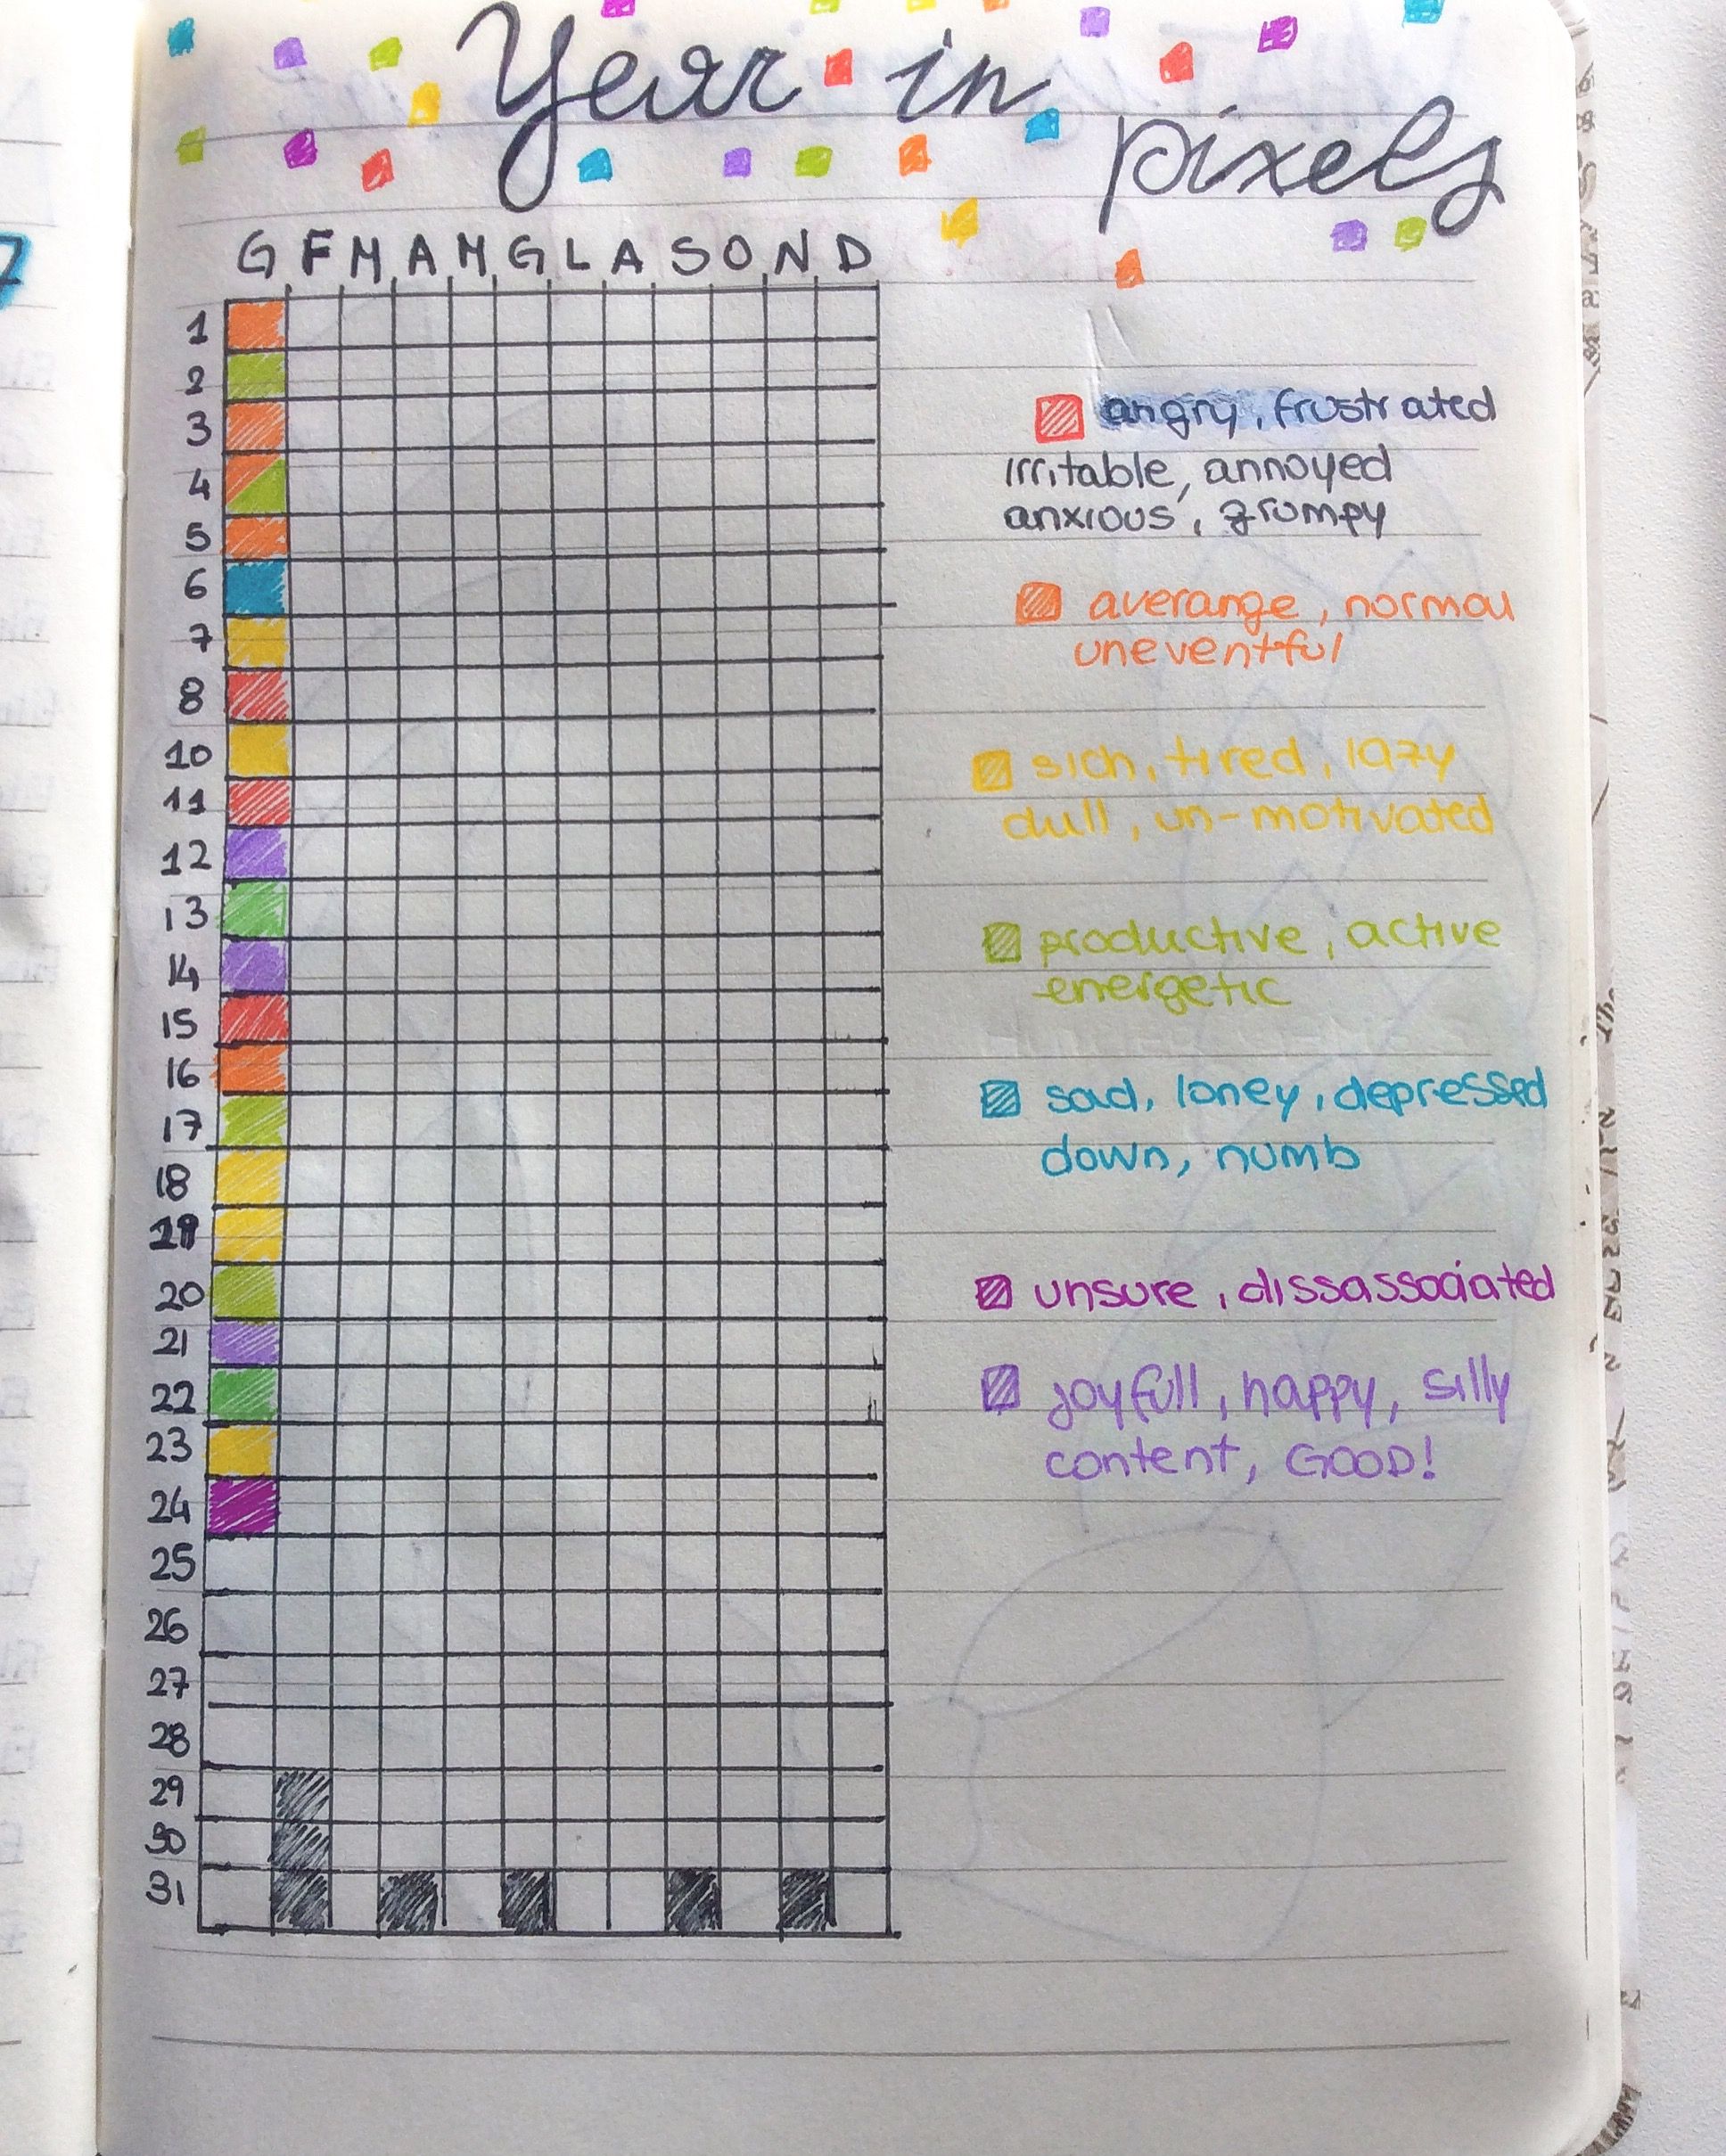 Year in
pixels
G F M A M G L A S O N D
1
2
3
4
5
6
7
8
10
11
12
13
14
15
16
17
18
19
20
21
22
23
24
25
26
27
28
29
30
31
angry, frustrated
irritable, annoyed
anxious, grumpy
averange, normal
uneventful
sich, tired, lazy
dull, un-motivated
productive, active
energetic
sad, loney, depressed
down, numb
unsure, dissassociated
joyfull, happy, silly
content, GOOD!
7